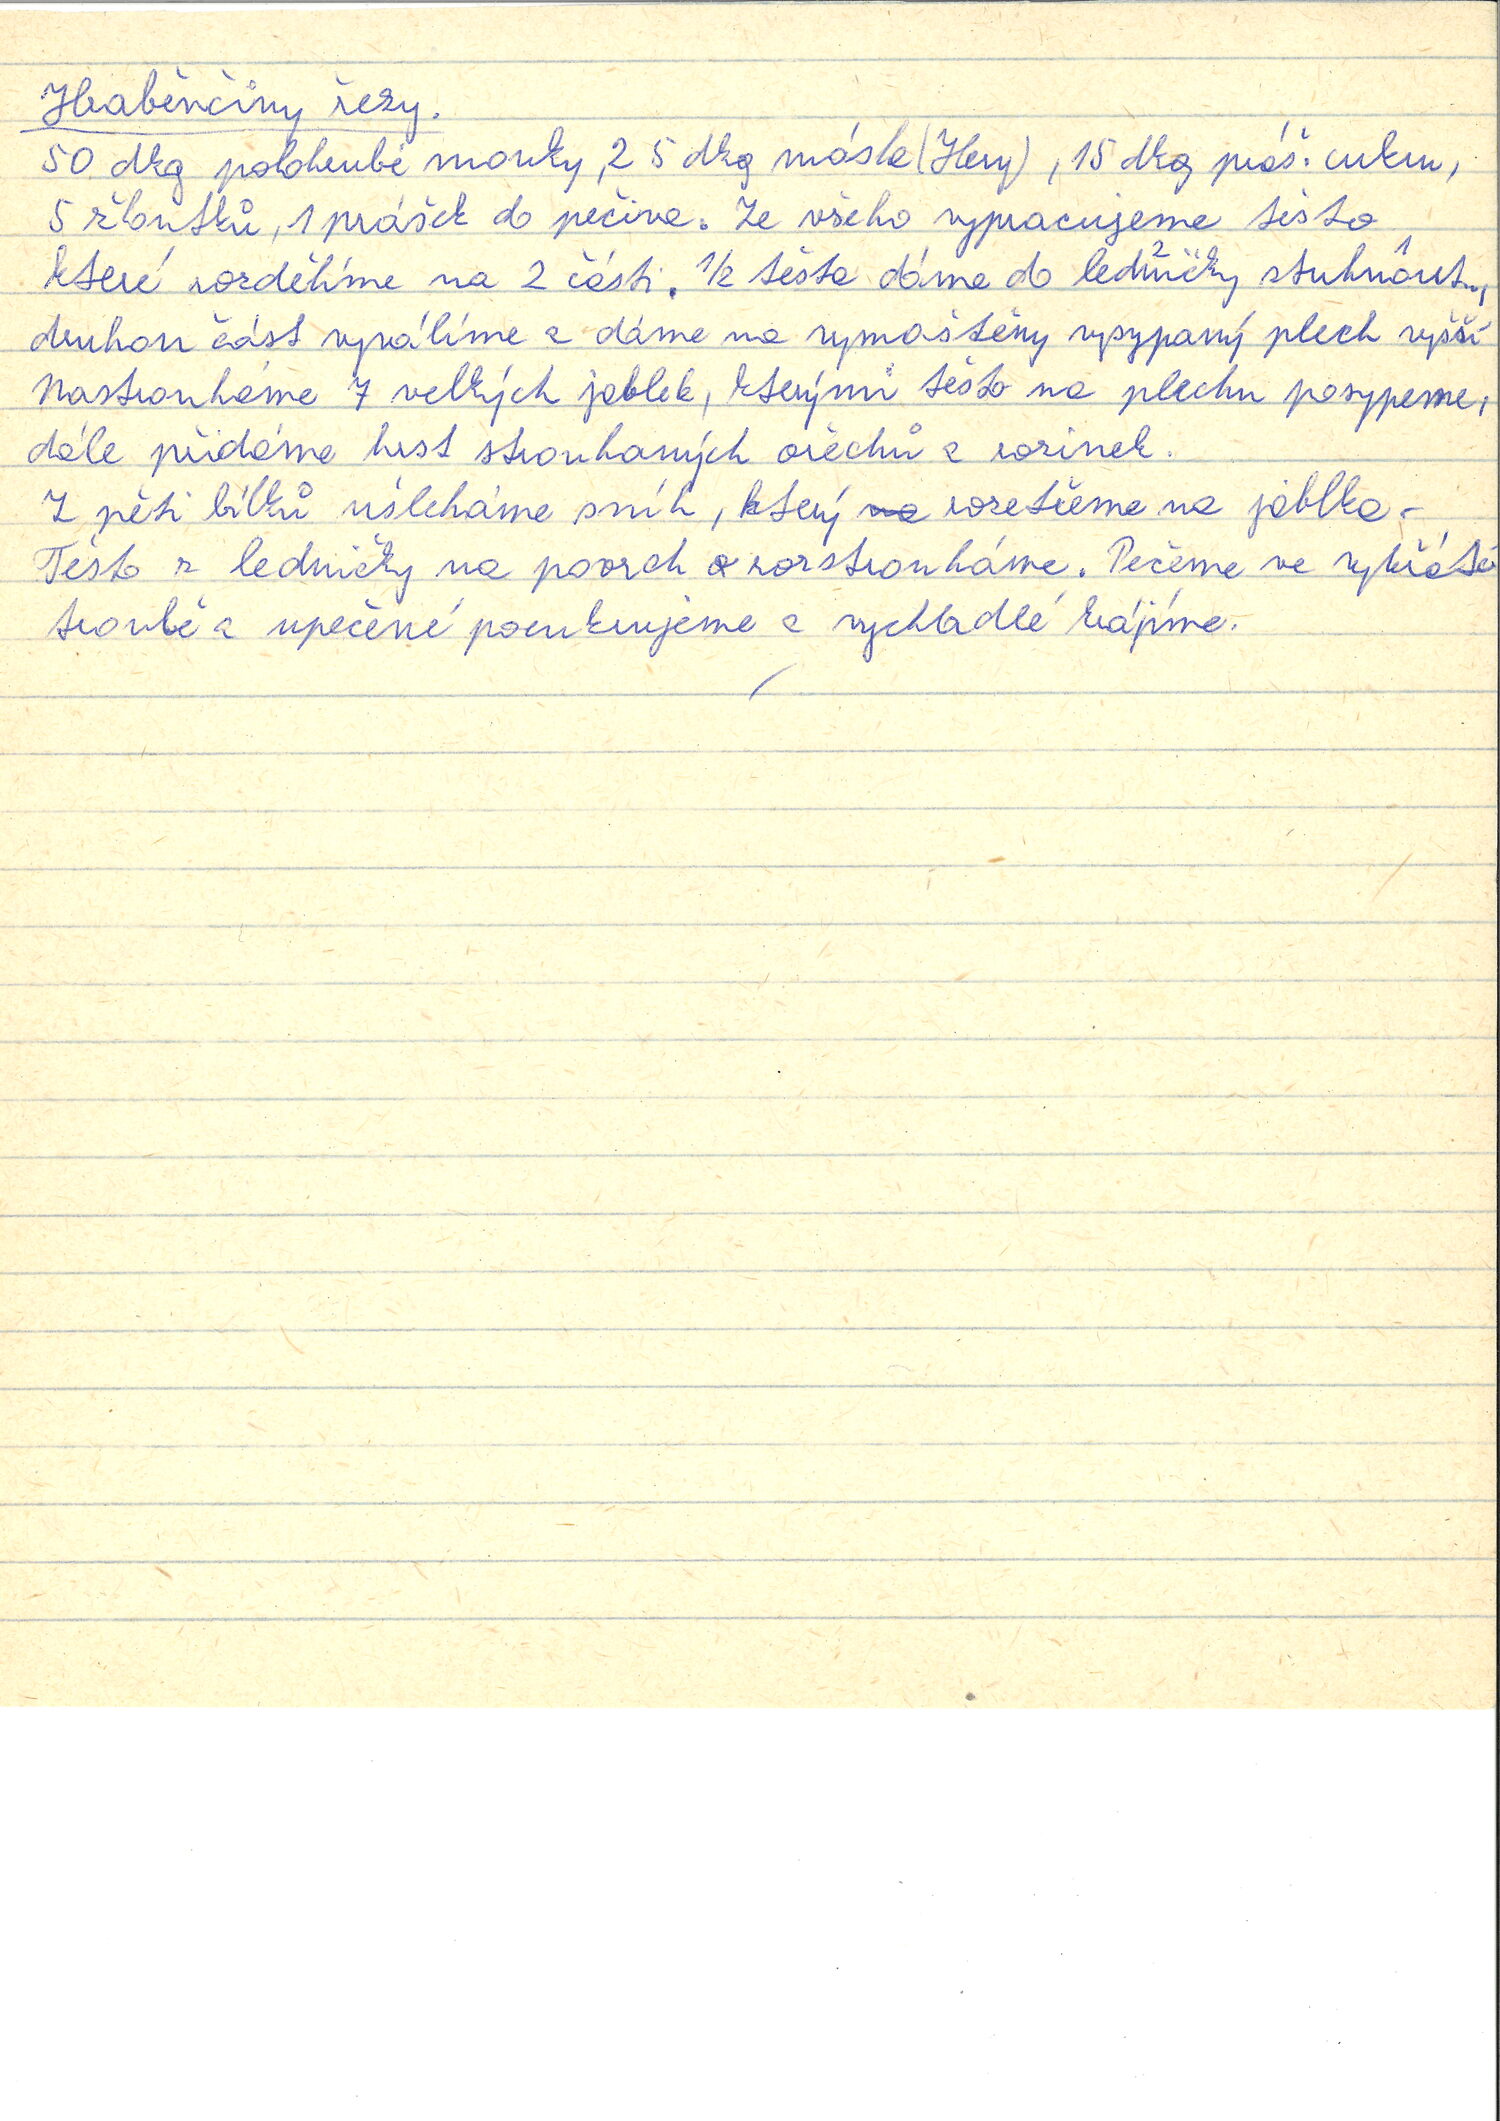 Hraběnčiny řezy.
50 dkg polohrubé mouky, 25 dkg másla (Hery), 15 dkg práš. cukru,
5 žloutků, 1 prášek do pečiva. Ze všeho vypracujeme těsto
které rozdělíme na 2 části. 1/2 těsta dáme do ledničky ztuhnout,
druhou část vyválíme a dáme na vymaštěny vysypaný plech vyšší
Nastrouháme 7 velkých jablek, kterými těsto na plechu posypeme,
dále přidáme hrst strouhaných ořechů a rozinek.
Z pěti bílků ušleháme sníh, který na rozetřeme na jablka -
Těsto z ledničky na povrch rozstrouháme. Pečeme ve vyhřáté
troubě a upečené pocukrujeme a vychladlé krájíme.